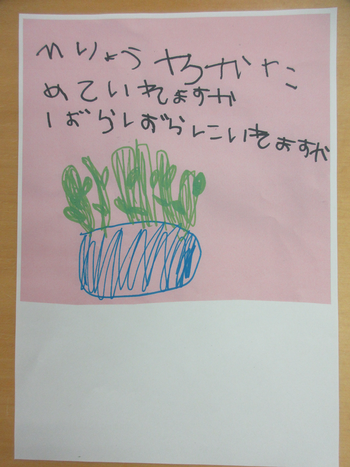 ひりょう かた
めていれますか
ばらばらにいれますか